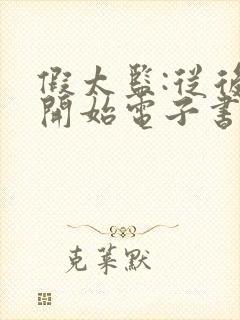 假太監:從後
開始電子書
克萊默